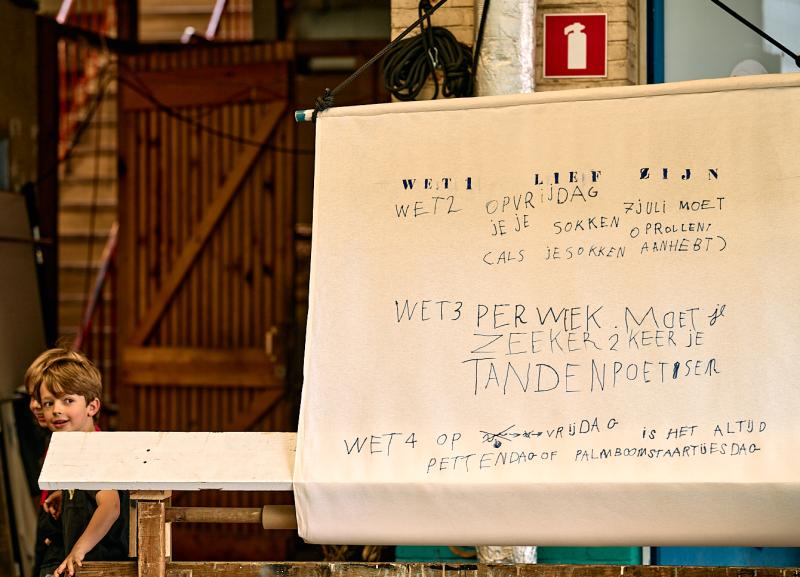 WET 1 LIEF ZIJN
WET2 OPVRIJDAG 7JULI MOET
JE JE SOKKEN OPROLLEN
(ALS JE SOKKEN AANHEBT)
WET3 PER WEEK. MOET je
ZEEKER 2 KEER JE
TANDENPOETSEN
WET4 OP VRIJDAG IS HET ALTIJD
PETTENDAG OF PALMBOOMSTAARTJESDAG